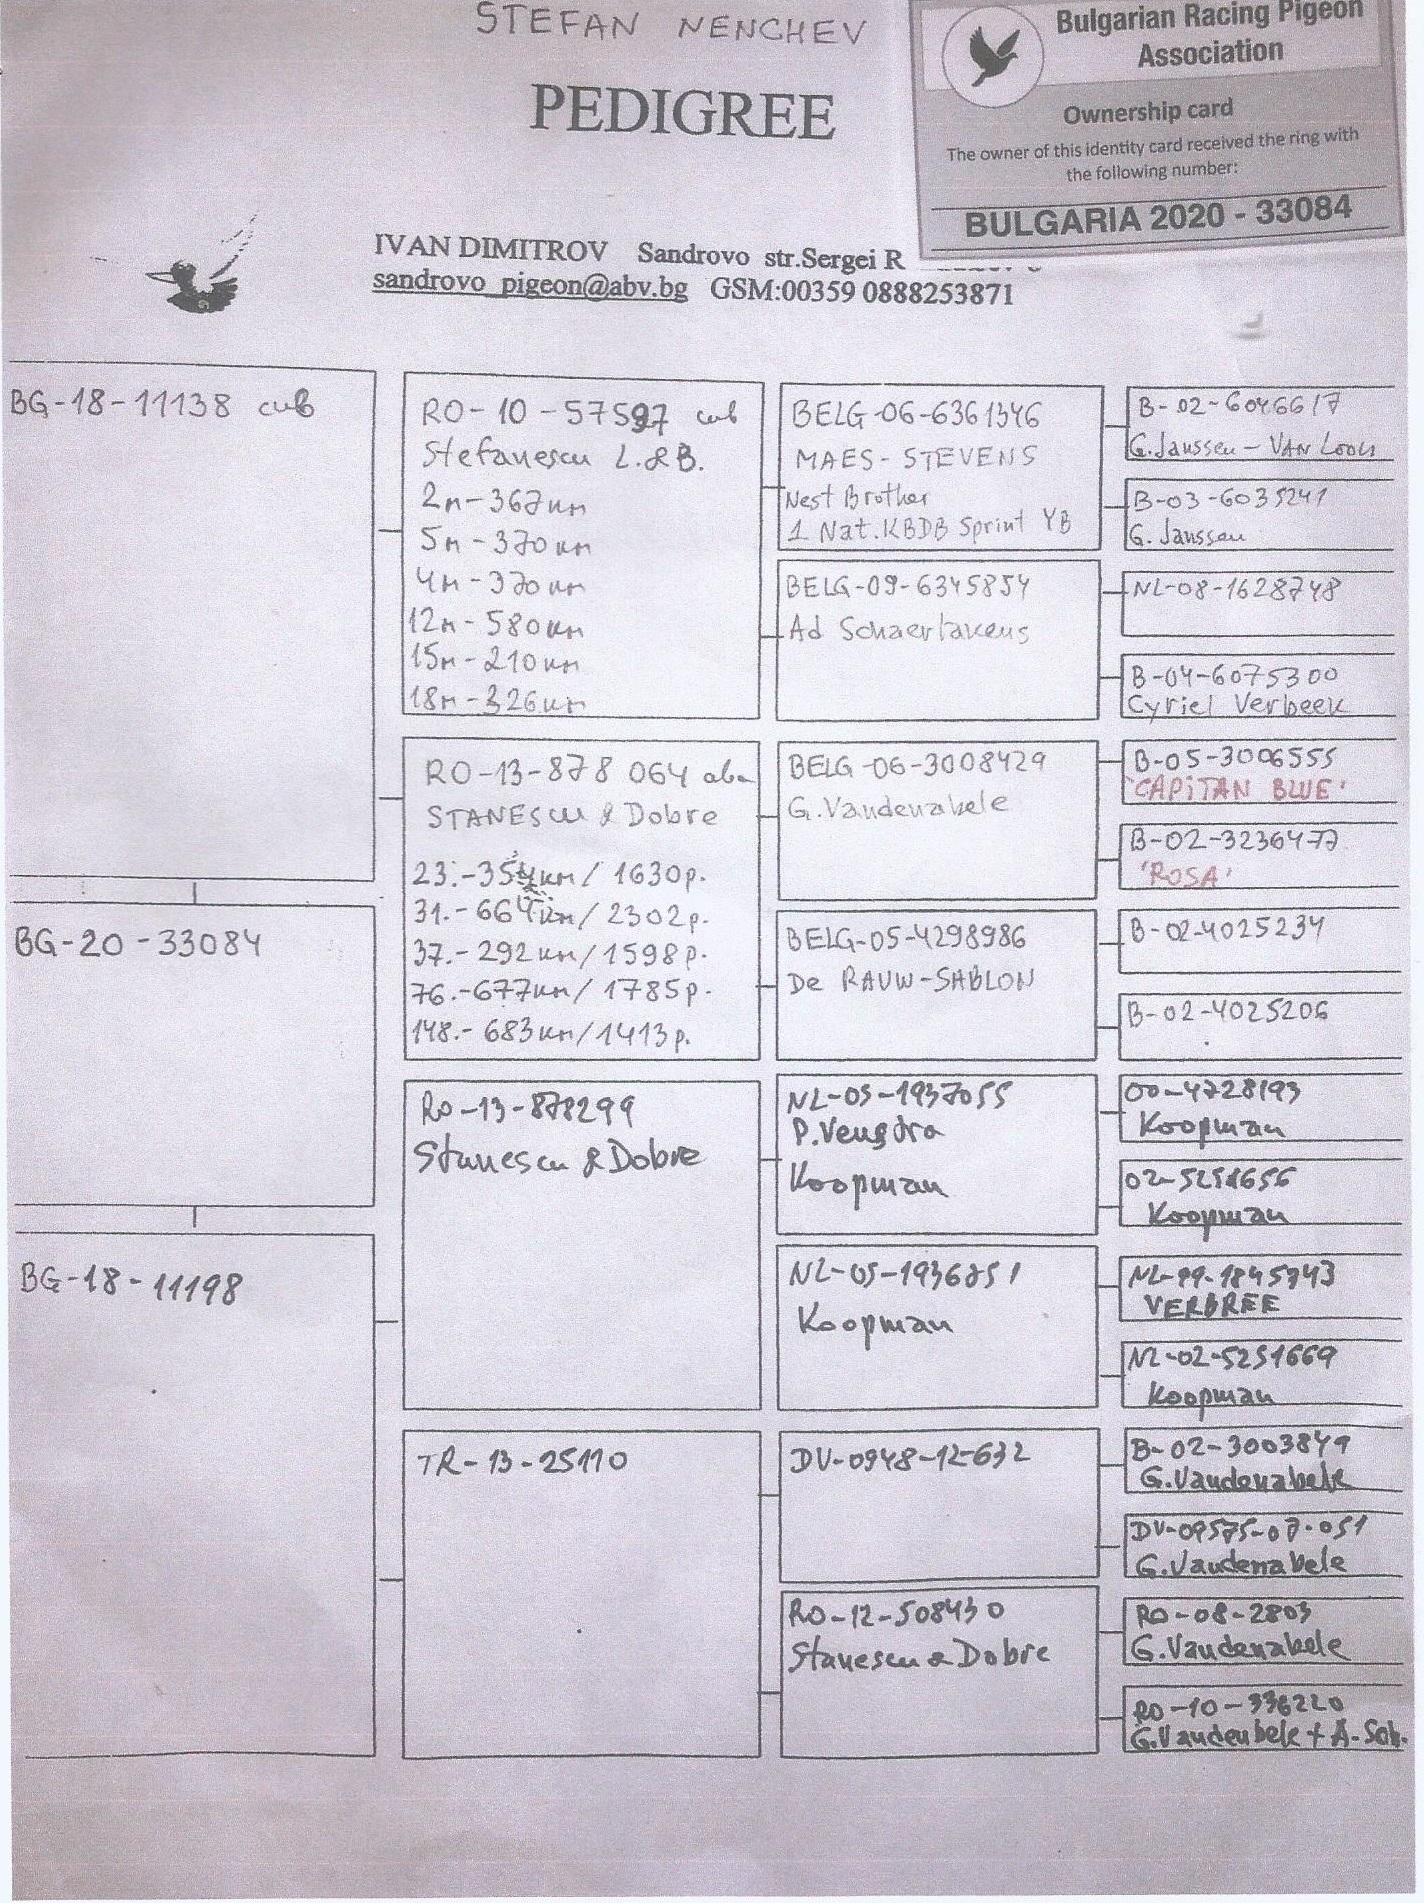 STEFAN NENCHEV
Bulgarian Racing Pigeon
Association
Ownership card
The owner of this identity card received the ring with
the following number:
BULGARIA 2020 - 33084
PEDIGREE
IVAN DIMITROV Sandrovo str.Sergei R
sandrovo_pigeon@abv.bg GSM:00359 0888253871
BG-18-11138 сив
BG-20-33084
BG-18-11198
RO-10-57597 сив
Stefanescu L.&B.
2м-367км
5м-370км
4м-370км
12м-580км
15м-210км
18м-326км
RO-13-878 064
STANESCU & Dobre
23.-354км/1630р.
31.-664км/2302р.
37.-292км/1598р.
76.-677км/1785р.
148.-683км/1413р.
RO-13-878299
Stanescu & Dobre
TR-13-25110
BELG-06-6361346
MAES-STEVENS
Nest Brother
1 Nat.KBDB Sprint YB
BELG-09-6345854
Ad Schaerlakens
BELG-06-3008429
G.Vandenabele
BELG-05-4298986
De RAUW-SABLON
NL-05-1937055
P.Veenstra
Koopman
NL-05-1936851
Koopman
DV-0948-12-632
RO-12-508430
Stanescu & Dobre
B-02-6046617
G.Janssen-VAN LOON
B-03-6035241
G.Janssen
NL-08-1628748
B-04-6075300
Cyriel Verbeek
B-05-3006555
'CAPITAN BLUE'
B-02-3236477
'ROSA'
B-02-4025234
B-02-4025206
00-4728193
Koopman
02-5251656
Koopman
NL-99-1845943
VERBREE
NL-02-5251669
Koopman
B-02-3003849
G.Vandenabele
DV-09575-07-051
G.Vandenabele
RO-08-2803
G.Vandenabele
RO-10-336220
G.Vandenbele + A.Sch.